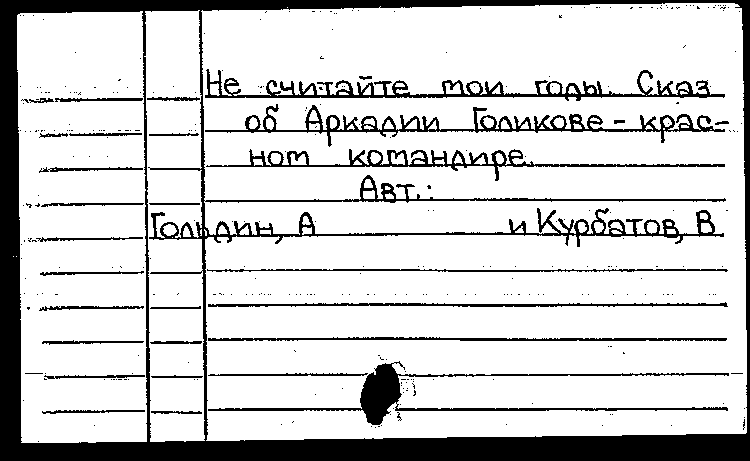 Не считайте мои годы. Сказ
об Аркадии Голикове - крас-
ном командире.
Авт.:
Гольдин, А и Курбатов, В